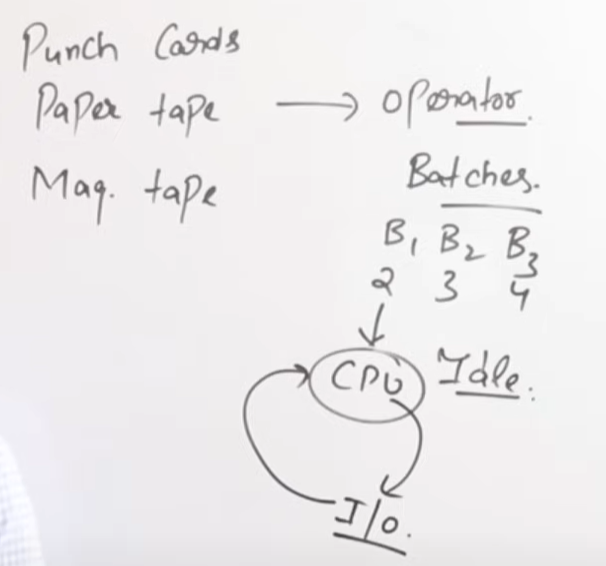 Punch Cards
Paper tape → Operator.
Mag. tape
Batches.
B1 B2 B3
2 3 4
CPU Idle.
I/O.